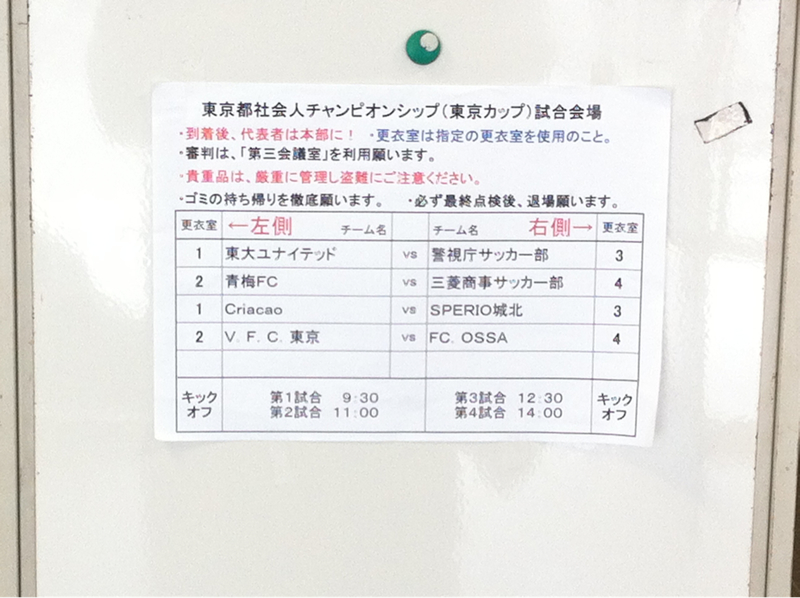 東京都社会人チャンピオンシップ(東京カップ)試合会場
・到着後、代表者は本部に! ・更衣室は指定の更衣室を使用のこと。
・審判は、「第三会議室」を利用願います。
・貴重品は、厳重に管理し盗難にご注意ください。
・ゴミの持ち帰りを徹底願います。 ・必ず最終点検後、退場願います。
更衣室 ←左側 チーム名 チーム名 右側→ 更衣室
1 東大ユナイテッド vs 警視庁サッカー部 3
2 青梅FC vs 三菱商事サッカー部 4
1 Criacao vs SPERIO城北 3
2 V.F.C.東京 vs FC.OSSA 4
キックオフ 第1試合 9:30 第3試合 12:30 キックオフ
第2試合 11:00 第4試合 14:00